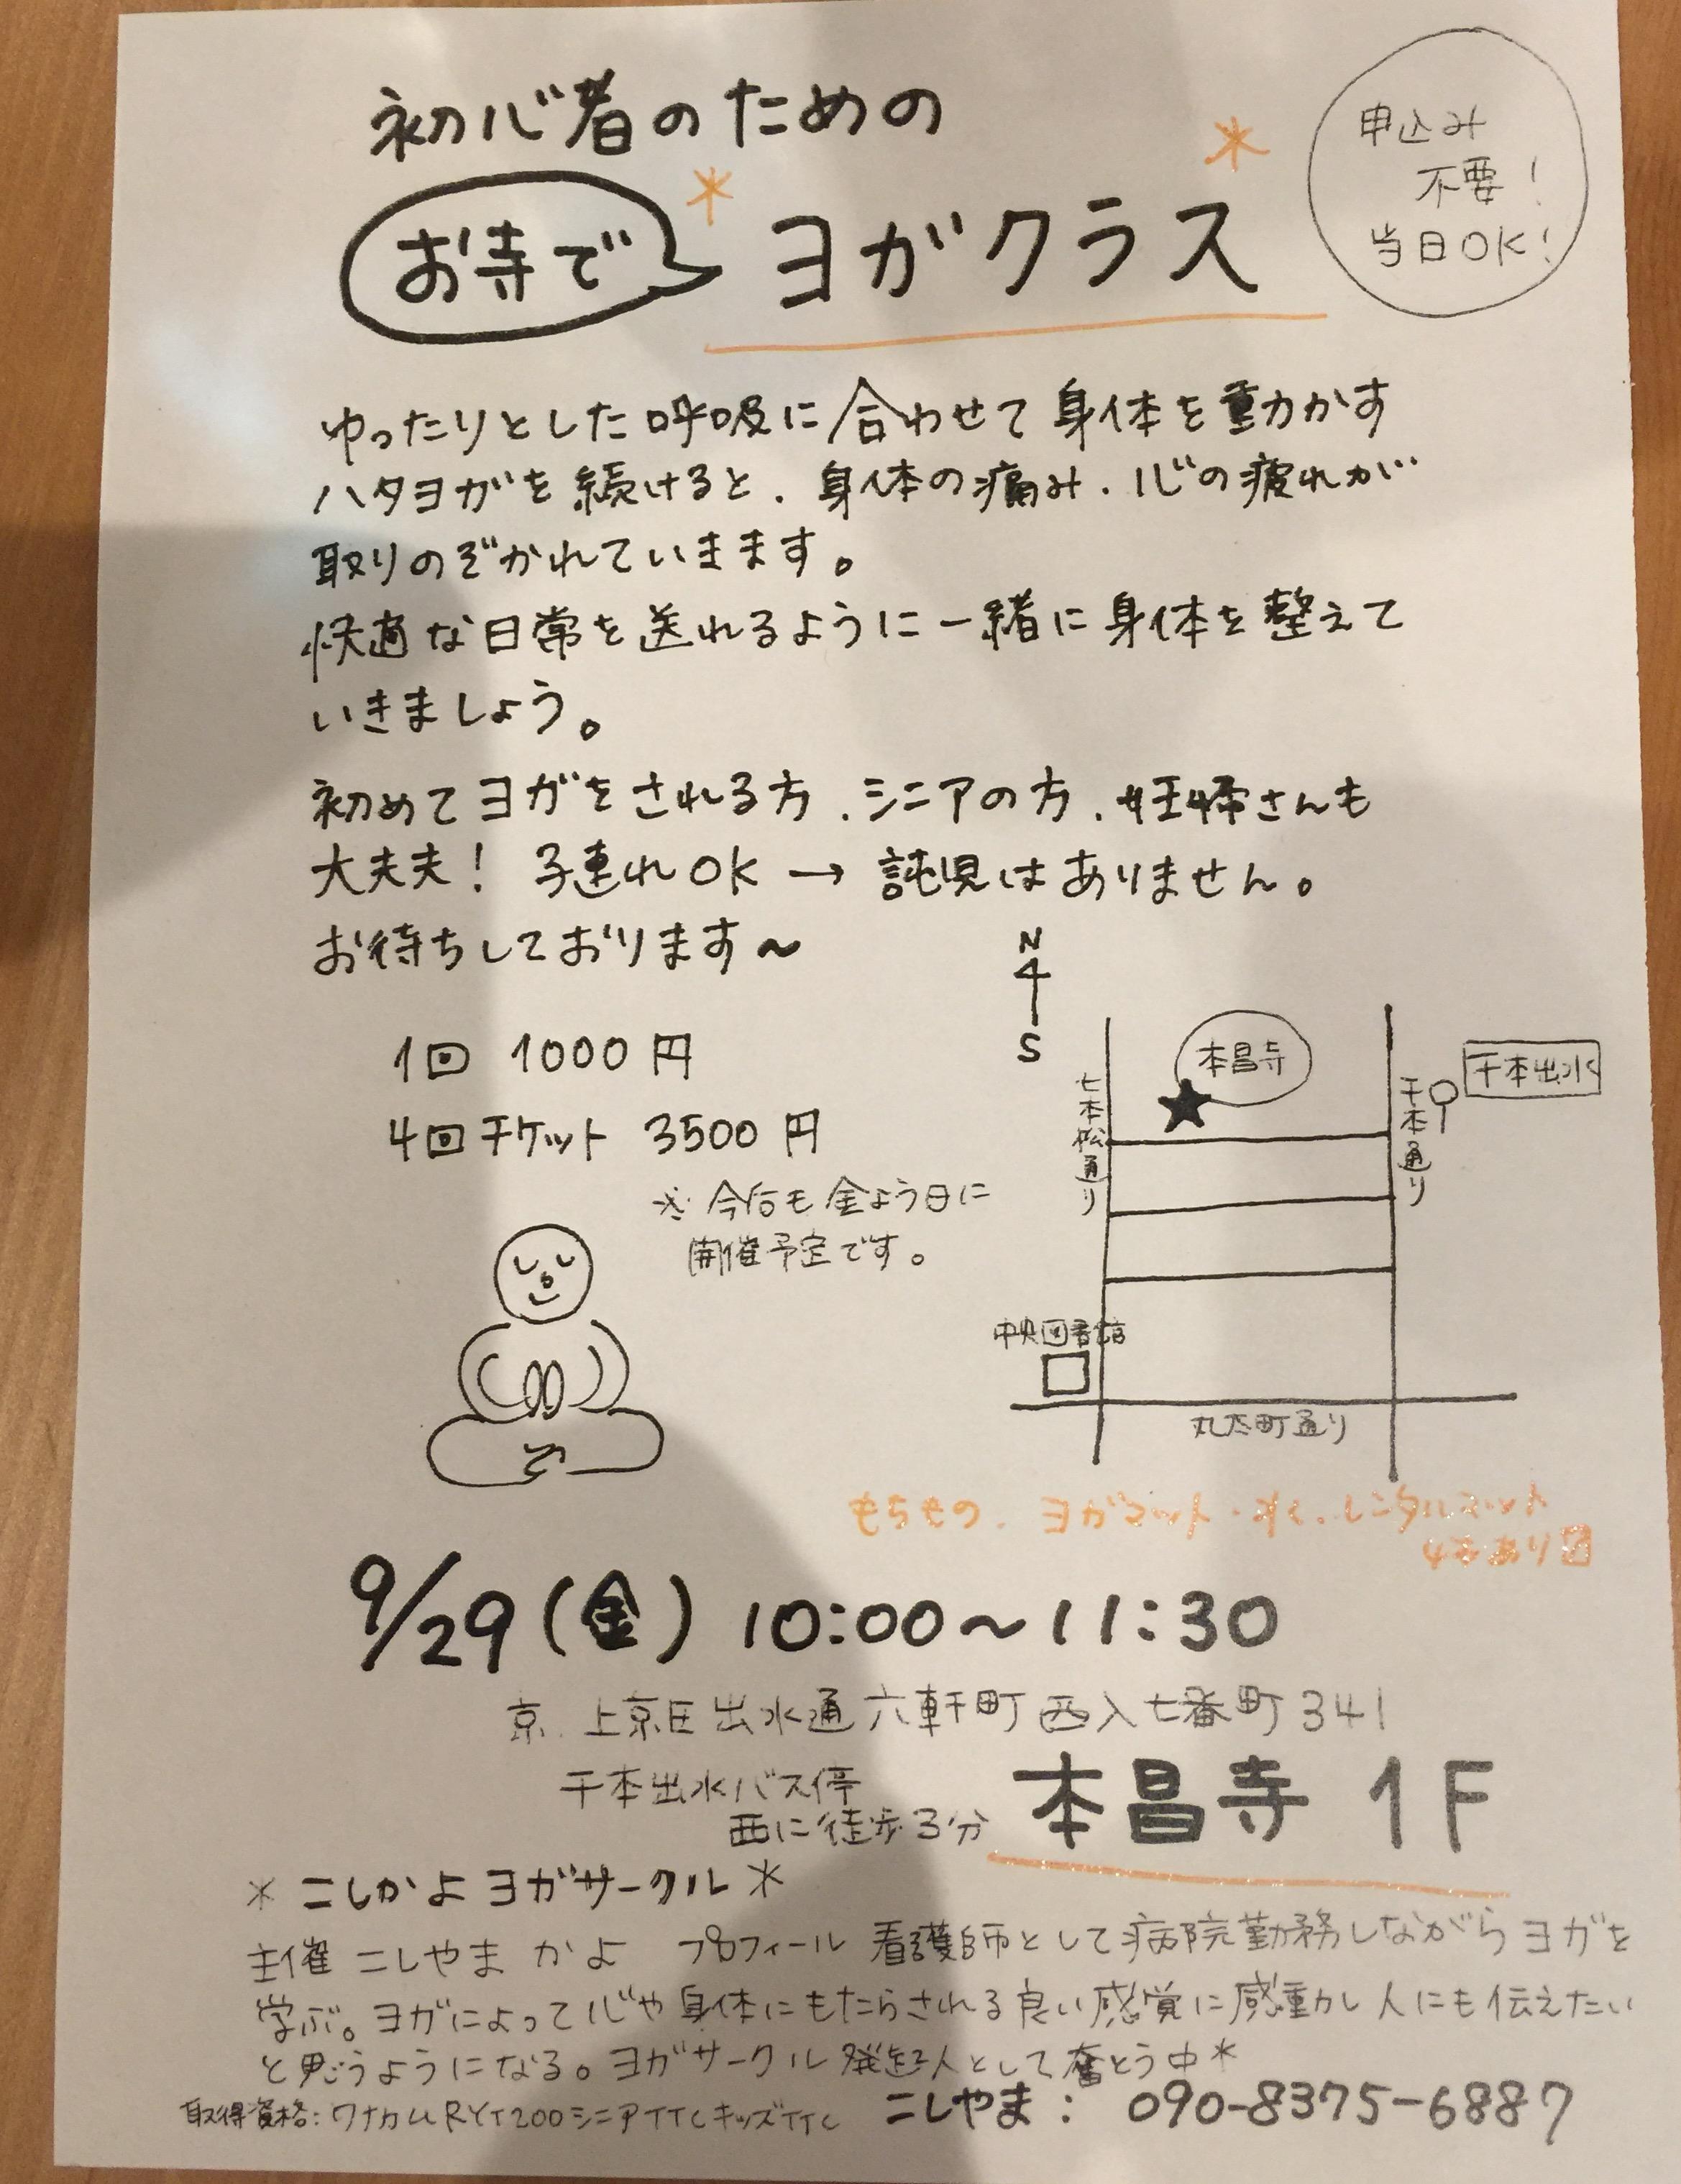 初心者のための
お寺で ヨガクラス
申込み
不要!
当日OK!
ゆったりとした呼吸に合わせて身体を動かす
ハタヨガを続けると、身体の痛み、心の疲れが
取りのぞかれていきます。
快適な日常を送れるように一緒に身体を整えて
いきましょう。
初めてヨガをされる方、シニアの方、妊婦さんも
大丈夫! 子連れOK→託児はありません。
お待ちしております〜
1回 1000円
4回チケット 3500円
※今后も金よう日に
開催予定です。
N
S
本昌寺
千本出水
七本松通り
千本通り
中央図書館
丸太町通り
もちもの、ヨガマット・水、レンタルマット
あり
9/29(金) 10:00〜11:30
京 上京区出水通六軒町西入七番町341
千本出水バス停
西に徒歩3分
本昌寺 1F
*こしかよヨガサークル*
主催 こしやま かよ プロフィール 看護師として病院勤務しながらヨガを
学ぶ。ヨガによって心や身体にもたらされる良い感覚に感動し人にも伝えたい
と思うようになる。ヨガサークル発起人として奮とう中*
取得資格:ワナカムRYT200シニアTTCキッズTTC
こしやま: 090-8375-6887